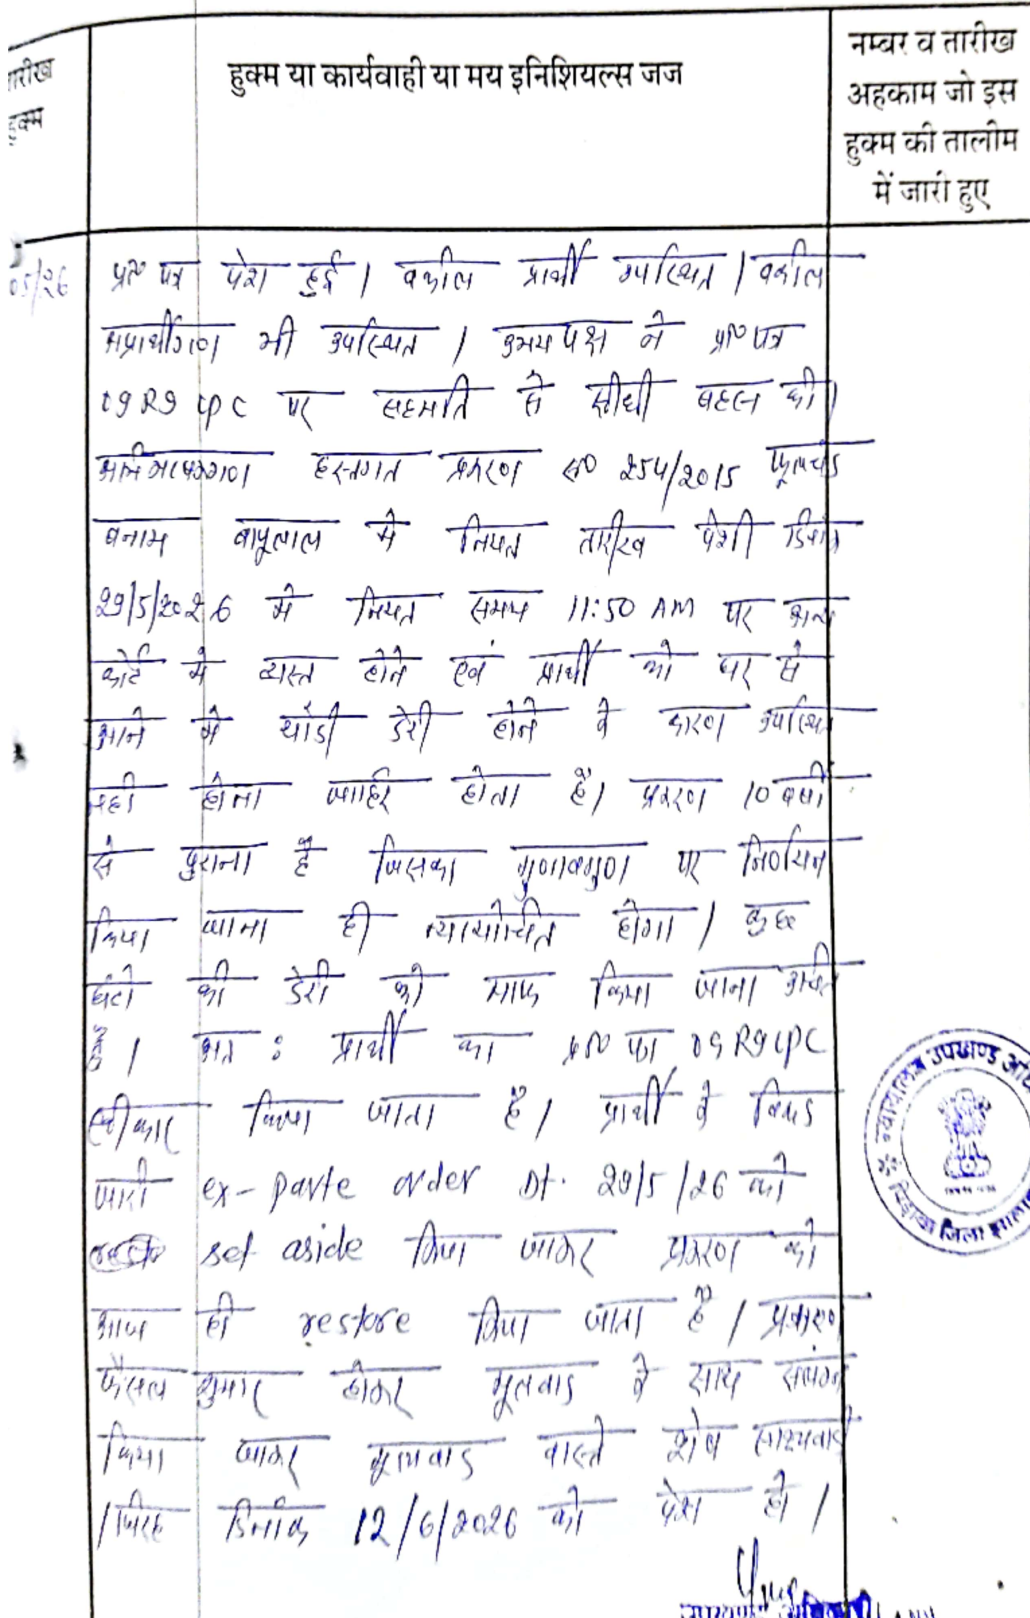 तारीख
हुक्म
हुक्म या कार्यवाही या मय इनिशियल्स जज
नम्बर व तारीख
अहकाम जो इस
हुक्म की तालीम
में जारी हुए
05/26
प्रा० पत्र पेश हुई। वकील प्रार्थी उपस्थित। वकील
अप्रार्थीगण भी उपस्थित। उभयपक्ष ने प्रा० पत्र
O9 R9 CPC पर सहमति से सीधी बहस की।
अभिभाषकगण हस्तगत प्रकरण स० 254/2015 फूलचंद
बनाम बापूलाल मे नियत तारीख पेशी दिनांक
29/5/2026 मे नियत समय 11:50 AM पर अन्य
कोर्ट मे व्यस्त होने एवं प्रार्थी को घर से
आने मे थोडी देरी होने के कारण उपस्थित
नही होना जाहिर होता है। प्रकरण 10 वर्षो
से पुराना है जिसका गुणावगुण पर निर्णयन
किया जाना ही न्यायोचित होगा। कुछ
घंटो की देरी को माफ किया जाना उचित
है। अत: प्रार्थी का प्रा० पत्र O9 R9 CPC
स्वीकार किया जाता है। प्रार्थी के विरुद्ध
जारी ex-parte order Dt. 29/5/26 को
set aside किया जाकर प्रकरण को
आज ही restore किया जाता है। प्रकरण
फैसल शुमार होकर मूलवाद के साथ संलग्न
किया जाकर मूलवाद वास्ते शेष साक्ष्यवादी
/जिरह दिनांक 12/6/2026 को पेश हो।
न्यायालय उपखण्ड अधि
पिड़ावा जिला झाला
उपखण्ड अधिकारी